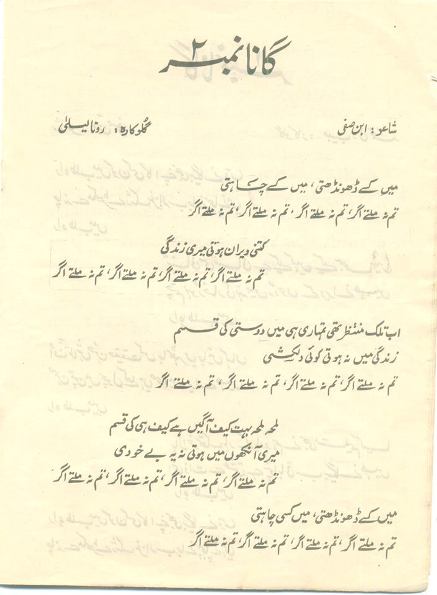 گانا نمبر ۲
شاعر: ابن صفی گلوکارہ: رونا لیلیٰ
میں کسے ڈھونڈھتی، میں کسے چاہتی
تم نہ ملتے اگر، تم نہ ملتے اگر، تم نہ ملتے اگر
کتنی ویران ہوتی میری زندگی
تم نہ ملتے اگر، تم نہ ملتے اگر، تم نہ ملتے اگر
اب تلک منتظر تھی تمہاری ہی میں دوستی کی قسم
زندگی میں نہ ہوتی کوئی دلکشی
تم نہ ملتے اگر، تم نہ ملتے اگر، تم نہ ملتے اگر
لمحہ لمحہ بہت کیف آگیں ہے کیف ہی کی قسم
میری آنکھوں میں ہوتی نہ یہ بے خودی
تم نہ ملتے اگر، تم نہ ملتے اگر، تم نہ ملتے اگر
میں کسے ڈھونڈھتی، میں کسی چاہتی
تم نہ ملتے اگر، تم نہ ملتے اگر، تم نہ ملتے اگر